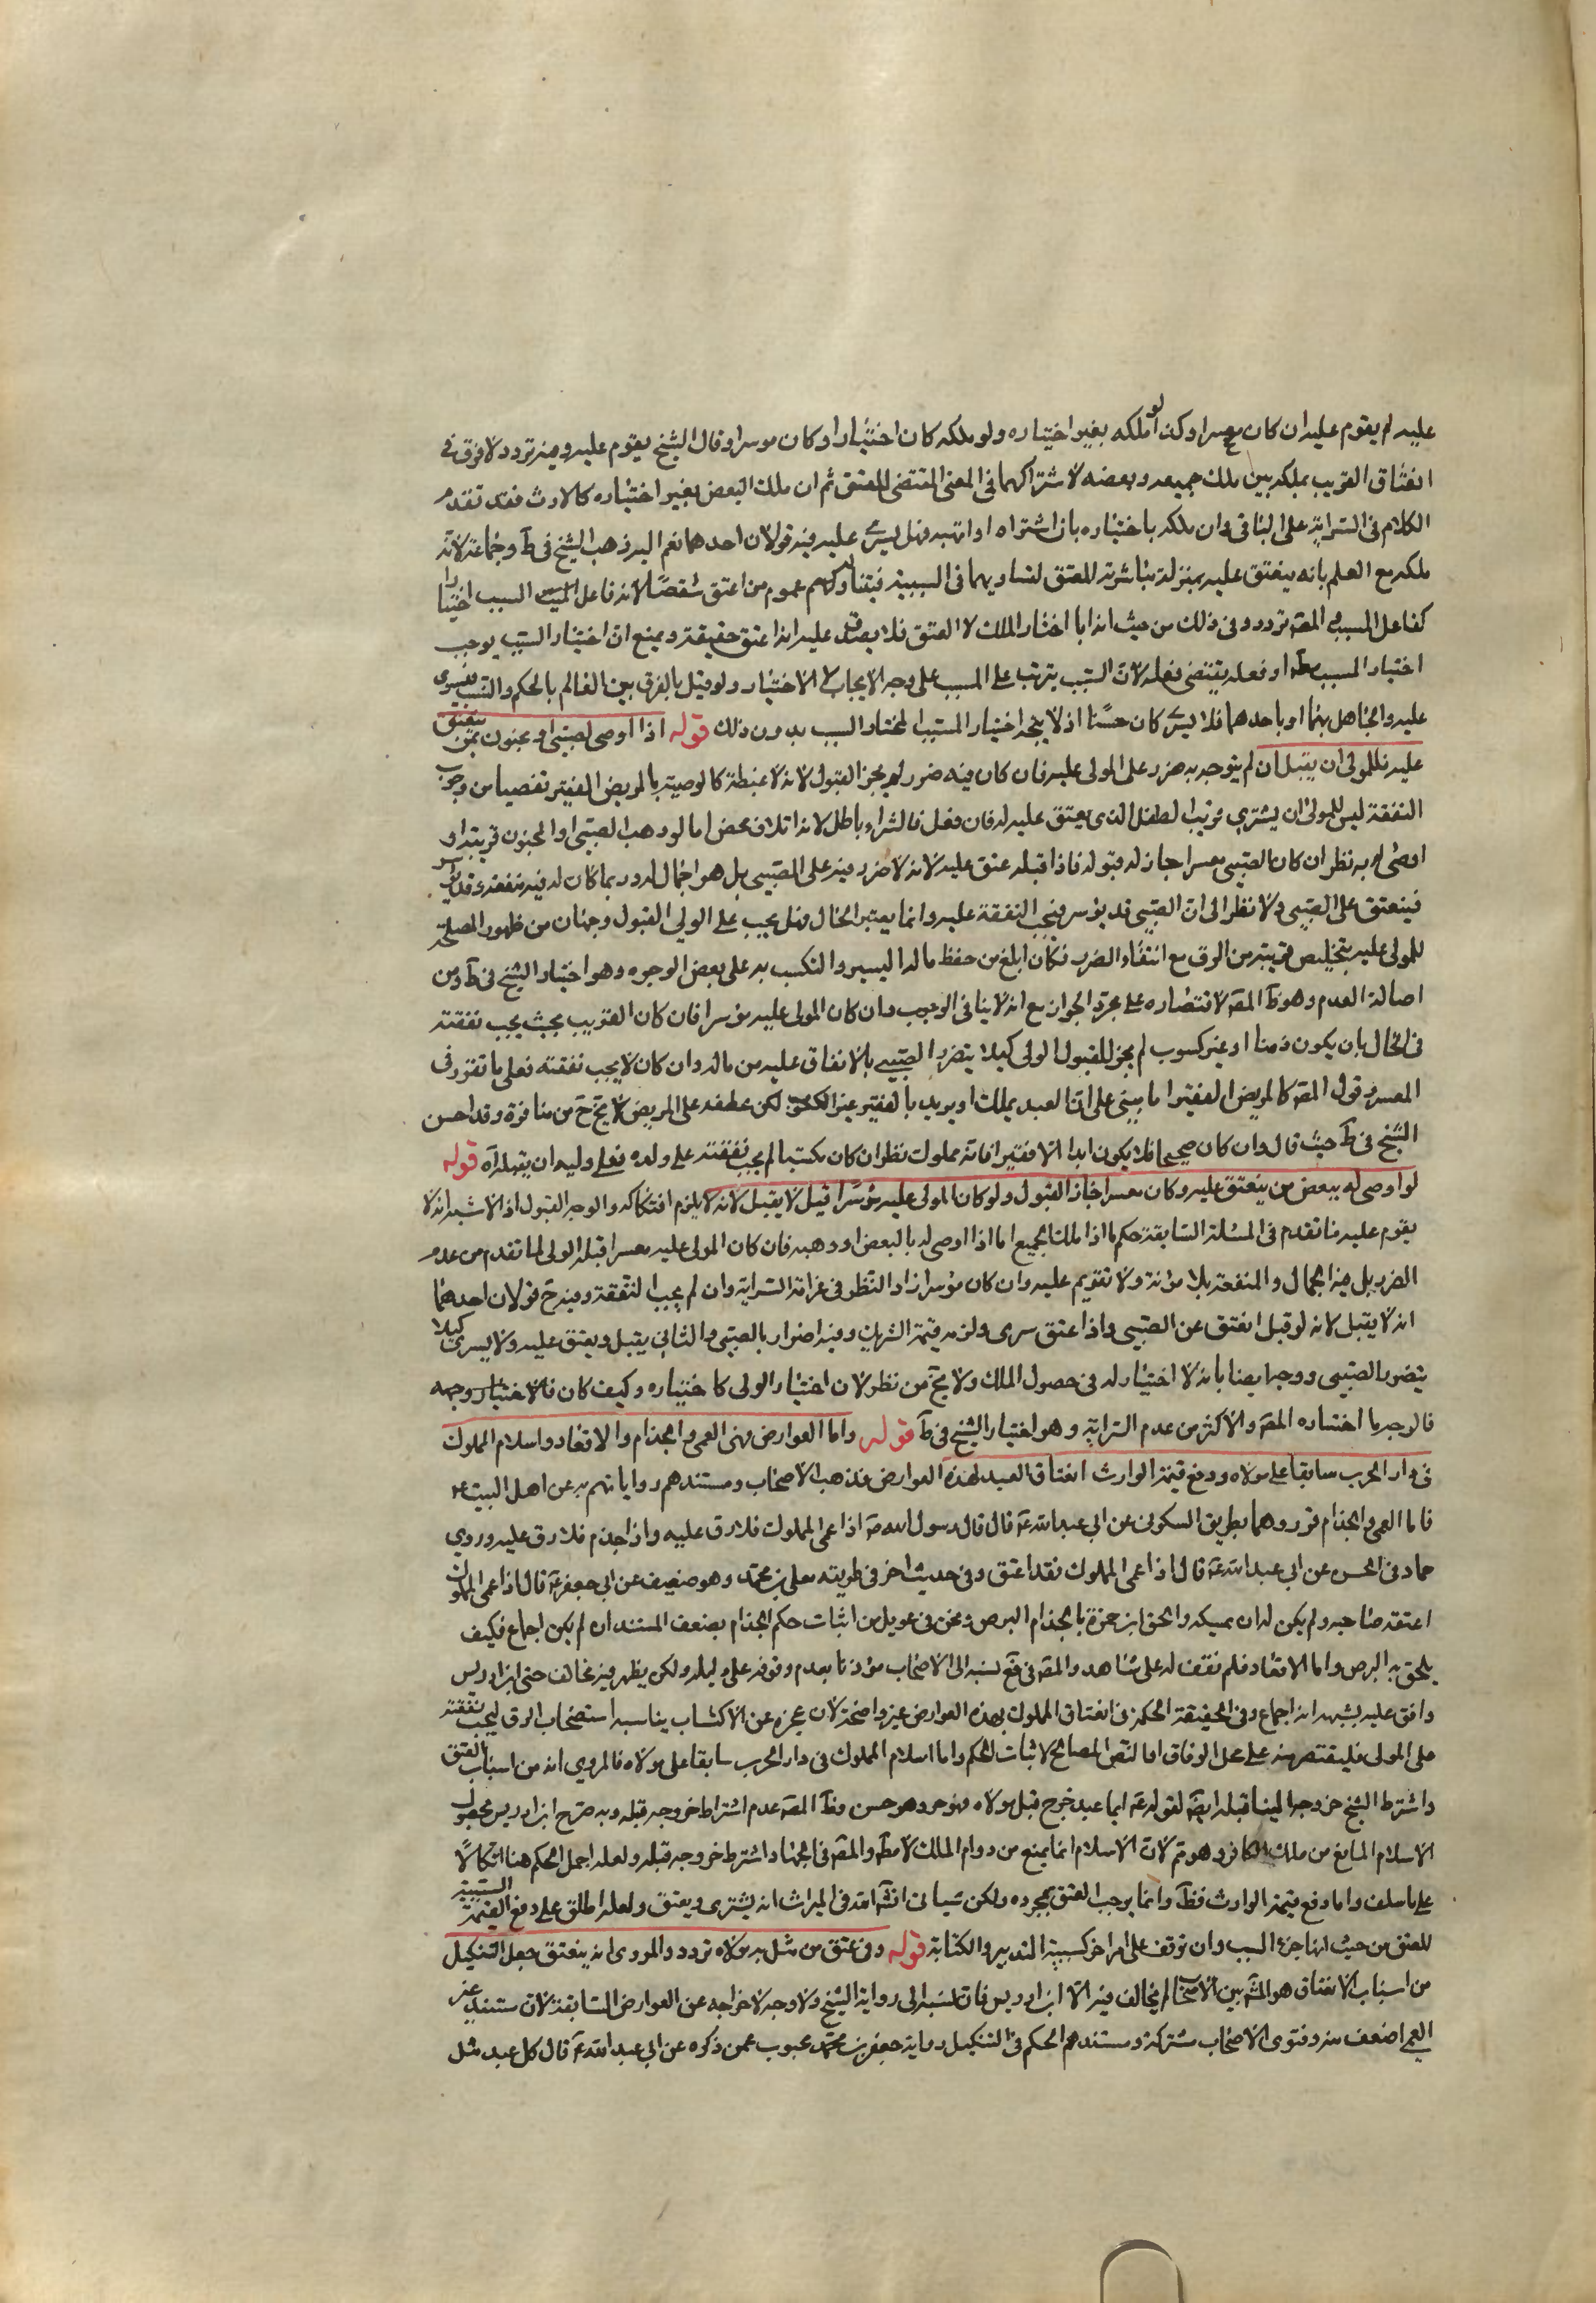 عليه لم يقوم عليه ان كان معسرا وكذا لو ملكه بغير اختياره ولو ملكه كان اختيارا وكان موسرا وقال الشيخ يقوم عليه وفيه تردد لا فرق في
انعتاق القريب بملكه بين ملك جميعه وبعضه لاشتراكهما في المعنى المقتضي للعتق ثم ان ملك البعض بغير اختياره كالارث فقد تقدم
الكلام في السراية على الباقي وان ملكه باختياره بان اشتراه او اتهبه فهل يسرى عليه فيه قولان احدهما نعم اليه ذهب الشيخ في ط وجماعة لانه
ملكه مع العلم بانه ينعتق عليه بمنزلة مباشرته للعتق لتساويهما في السببية فيتناوله عموم من اعتق شقصا لانه فاعل السبب اختيارا
كفاعل المسبب المصه تردد وفي ذلك من حيث انه اختار الملك لا العتق فلا يصدق عليه انه اعتق حقيقة ويمنع ان اختيار السبب يوجب
اختيار المسبب مط او فعله يقتضي فعله لان السبب يترتب على المسبب على وجه الايجاب لا الاختيار ولو قيل بالفرق بين العالم بالحكم والنسب فيسرى
عليه والجاهل بهما او باحدهما فلا يسرى كان حسنا اذ لا يتجه اختيار المسبب لمختار السبب بدون ذلك قوله اذا اوصى لصبي او مجنون بمن ينعتق
عليه فللولي ان يقبل ان لم يتوجه به ضرر على المولى عليه فان كان فيه ضرر لم يجز القبول لانه لا غبطة كالوصية بالمريض الفقير تفصيا من وجوب
النفقة ليس للولي ان يشتري قريب الطفل الذي يعتق عليه له فان فعل فالشراء باطل لانه اتلاف محض اما لو وهب الصبي او المجنون قريبه او
اوصى له به نظر ان كان الصبي معسرا جاز له قبوله فاذا قبله عتق عليه لانه لا ضرر فيه على الصبي بل هو اجمال له وربما كان له فيه منفعة وقد يوسر
فينعتق على الصبي ولا نظر الى ان الصبي قد يوسر فيجب النفقة عليه وانما يعتبر الحال وهل يجب على الولي القبول وجهان من ظهور المصلحة
للمولى عليه بتخليص قريبه من الرق مع انتفاء الضرر فكان ابلغ من حفظ ماله اليسير والتكسب به على بعض الوجوه وهو اختيار الشيخ في ط ومن
اصالة العدم وهو ظ المصه لاقتصاره على مجرد الجواز مع انه لا ينافي الوجوب وان كان المولى عليه موسرا فان كان القريب بحيث يجب نفقته
في الحال بان يكون زمنا او غير كسوب لم يجز للقبول الولي كيلا يتضرر الصبي بالانفاق عليه من ماله وان كان لا يجب نفقته فعلى ما تقرر في
المعسر وقول المصه كالمريض الفقير اما مبني على ان العبد يملك او يريد بالفقير غير الكسوب لكن عطفه على المريض لا يخ ح من منافرة وقد احسن
الشيخ في ط حيث قال وان كان صحيحا فلا يكون ابدا الا فقيرا فانه مملوك نظر ان كان مكتسبا لم يجب نفقته على ولده فعلى وليه ان يقبله آه قوله
لو اوصي له ببعض من ينعتق عليه وكان معسرا جاز القبول ولو كان المولى عليه موسرا قيل لا يقبل لانه يلزم افتكاكه والوجه القبول اذ الاشبه انه لا
يقوم عليه ما تقدم في المسئلة السابقة حكم ما اذا ملك الجميع اما اذا اوصي له بالبعض او وهبه فان كان المولى عليه معسرا قبله الولي لما تقدم من عدم
الضرر بل فيه الجمال والمنفعة بلا مؤنة ولا تقويم عليه وان كان موسرا زاد النظر في غرامة السراية وان لم يجب النفقة وفيه ح قولان احدهما
انه لا يقبل لانه لو قبل انعتق عن الصبي واذا عتق سرى ولزمه قيمة الشريك وفيه اضرار بالصبي والثاني يقبل ويعتق عليه ولا يسرى كيلا
يتضرر الصبي ووجه ايضا بانه لا اختيار له في حصول الملك ولا يخ من نظر لان اختيار الولي كاختياره وكيف كان فالاختيار وجهه
فالوجه ما اختاره المصه والاكثر من عدم السراية وهو اختيار الشيخ في ط قوله واما العوارض فهي العمى والجذام والاقعاد واسلام المملوك
في دار الحرب سابقا على مولاه ودفع قيمة الوارث انعتاق العبد لهذه العوارض مذهب الاصحاب ومستندهم رواياتهم به عن اهل البيت ع
فاما العمى والجذام فرووهما بطريق السكوني عن ابي عبد الله ع قال قال رسول الله ص اذا عمى المملوك فلا رق عليه واذا جذم فلا رق عليه وروي
حماد في الحسن عن ابي عبد الله ع قال اذا عمى المملوك فقد اعتق وفي حديث اخر في طريقه معلى بن محمد وهو ضعيف عن ابي جعفر ع قال اذا عمى المملوك
اعتقه صاحبه ولم يكن له ان يمسكه والحق ابن حمزة بالجذام البرص ونحن في عويل من اثبات حكم الجذام بضعف المستند ان لم يكن اجماع فكيف
يلحق به البرص واما الاقعاد فلم نقف له على شاهد والمصه في فع نسبه الى الاصحاب مؤذنا بعدم وقوفه على دليله ولكن يظهر فيه مخالف حتى ابن ادريس
وافق عليه بشبهه انه اجماع وفي الحقيقة الحكمة في انعتاق المملوك بهذه العوارض غير واضحة لان عجزه عن الاكتساب يناسبه استصحاب الرق ليجب نفقته
على المولى فليقتصر منه على محل الوفاق او النص الصالح لاثبات الحكم واما اسلام المملوك في دار الحرب سابقا على مولاه فالمروي انه من اسباب العتق
واشترط الشيخ خروجه الينا قبله ايضه لقوله ع ايما عبد خرج قبل مولاه فهو حر وهو حسن وظ المصه عدم اشتراط خروجه قبله وبه صرح ابن ادريس محصول
الاسلام المانع من ملك الكافر وهو تم لان الاسلام انما يمنع من دوام الملك لا مط والمصه في الجهاد اشترط خروجه قبله ولعله اجمل الحكم هنا اتكالا
على ما سلف واما دفع قيمة الوارث فظ وانما يوجب العتق بمجرده ولكن سياتي انش الله في الميراث انه يشترى ويعتق ولعله اطلق على دفع القيمة السببية
للعتق من حيث انها جزء السبب وان توقف على امر اخر كسببية التدبير والكتابة قوله وفي عتق من مثل به مولاه تردد والمروي انه ينعتق جعل التنكيل
من اسباب الانعتاق هو المشه بين الاصحاب لم يخالف فيه الا ابن ادريس فان نسبه الى رواية الشيخ ولا وجه لاخراجه عن العوارض السابقة لان مستند غير
العمى اضعف منه وفتوى الاصحاب مشتركة ومستندهم الحكم في التنكيل رواية جعفر بن محمد محبوب عمن ذكره عن ابي عبد الله ع قال كل عبد مثل